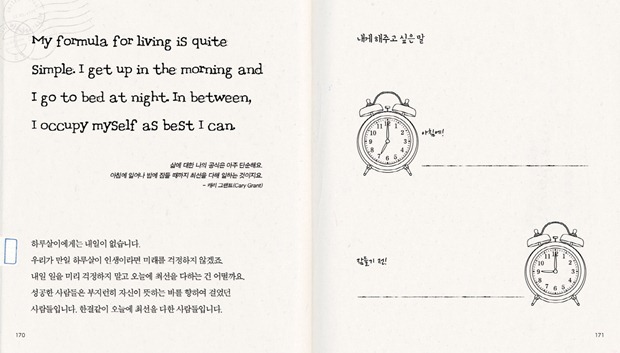 My formula for living is quite
simple. I get up in the morning and
I go to bed at night. In between,
I occupy myself as best I can.
삶에 대한 나의 공식은 아주 단순해요.
아침에 일어나 밤에 잠들 때까지 최선을 다해 일하는 것이지요.
- 캐리 그랜트(Cary Grant)
하루살이에게는 내일이 없습니다.
우리가 만일 하루살이 인생이라면 미래를 걱정하지 않겠죠.
내일 일을 미리 걱정하지 말고 오늘에 최선을 다하는 건 어떨까요.
성공한 사람들은 부지런히 자신이 뜻하는 바를 향하여 걸었던
사람들입니다. 한결같이 오늘에 최선을 다한 사람들입니다.
170
내게 해주고 싶은 말
12
1
2
3
4
5
6
7
8
9
10
11
아침에!
잠들기 전!
12
1
2
3
4
5
6
7
8
9
10
11
171